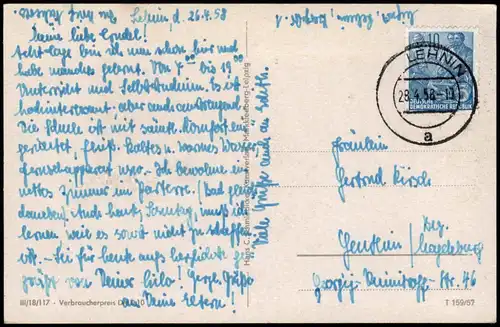 Lehnin, d. 26.4.58
Meine liebe Trudel!
Acht Tage bin ich nun schon hier und
habe manches gelernt. Von 7⁰⁰ bis 19⁰⁰
Unterricht und Selbststudium. Es ist
hochinteressant aber auch anstrengend.
Die Schule ist mit sämtl. Komfort ein-
gerichtet, fließ. kaltes u. warmes Wasser
Fernsehapparat usw. Ich bewohne ein
nettes Zimmer im Parterre. (Bad gleich
daneben). Auch heute, Sonntag, muß ich
lernen, weil es sonst nicht zu schaffen
ist. – Sei für heute aufs herzlichste ge-
grüßt von Deiner Lilo! Herzl. Grüße
an Deine Eltern!
Viele Grüße auch an
III/18/117 - Verbraucherpreis DM
LEHNIN
28.4.58
a
10
DEUTSCHE
DEMOKRATISCHE REPUBLIK
Fräulein
Gertrud Kirsch
Genthin / Bez.
Magdeburg
Georgij-Dimitroff-Str. 46
T 159/57